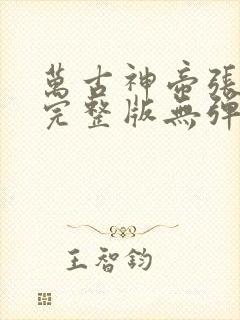 萬古神帝張
完整版無彈
王智鈞